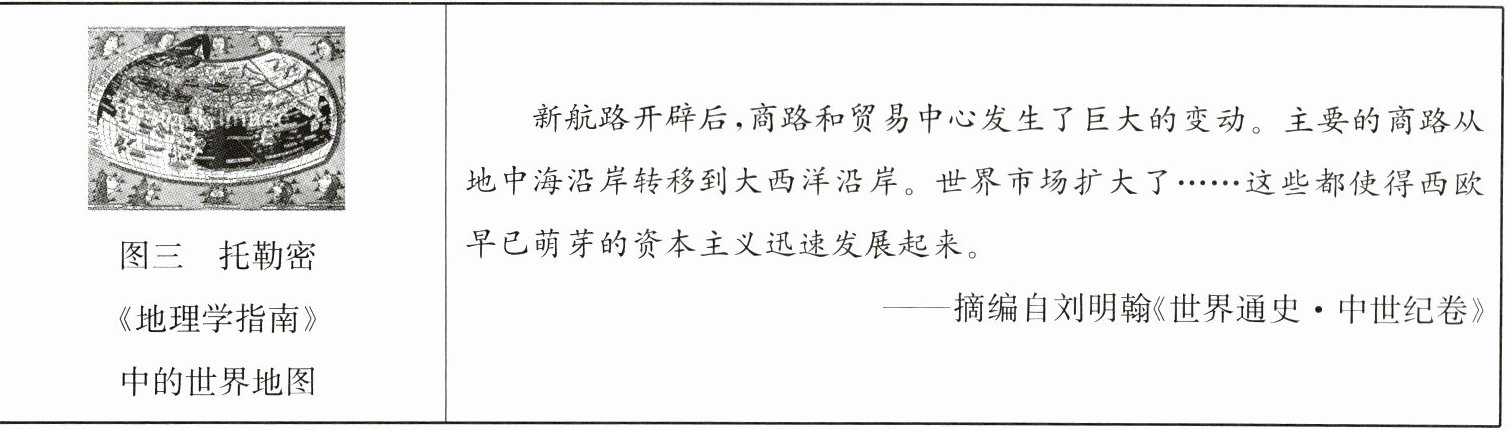 图三 托勒密
《地理学指南》
中的世界地图
新航路开辟后,商路和贸易中心发生了巨大的变动。主要的商路从
地中海沿岸转移到大西洋沿岸。世界市场扩大了……这些都使得西欧
早已萌芽的资本主义迅速发展起来。
——摘编自刘明翰《世界通史·中世纪卷》